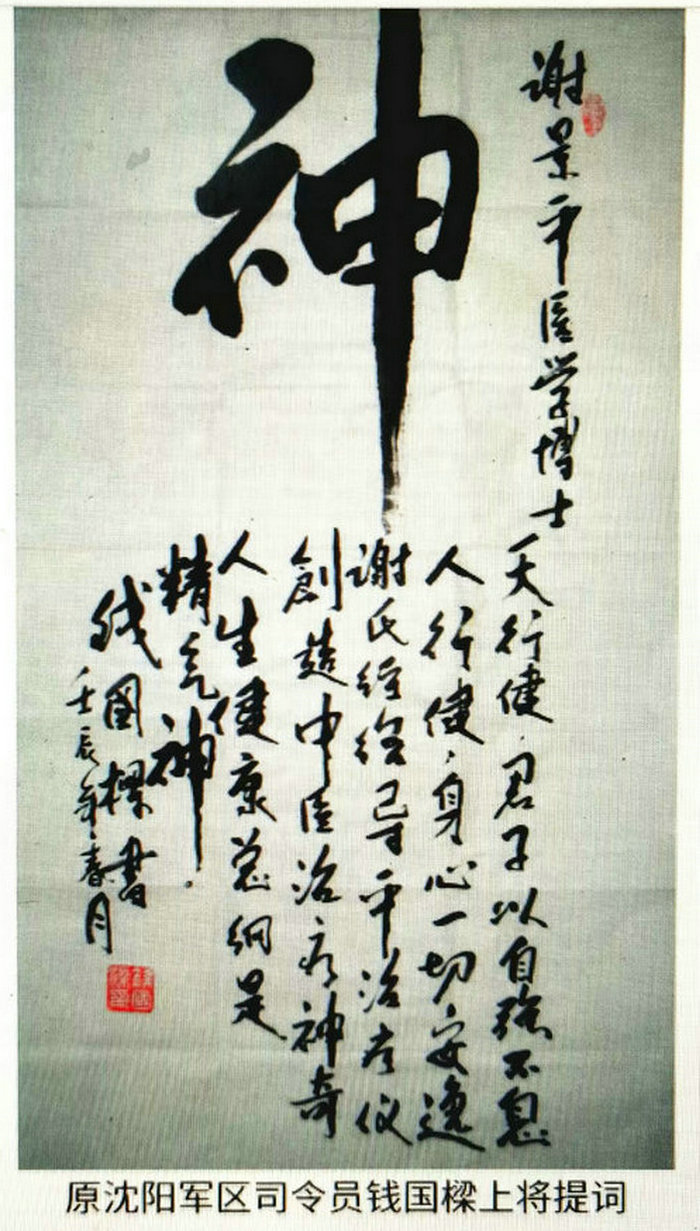 谢景平医学博士
神
天行健，君子以自强不息
人行健，身心一切安逸
谢氏经络寻平治疗仪
創造中医治病神奇
人生健康总纲是
精气神
钱国樑书
壬辰年春月
原沈阳军区司令员钱国樑上将提词